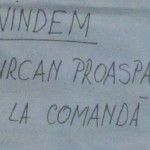 VINDEM
CURCAN PROASPĂ
LA COMANDĂ